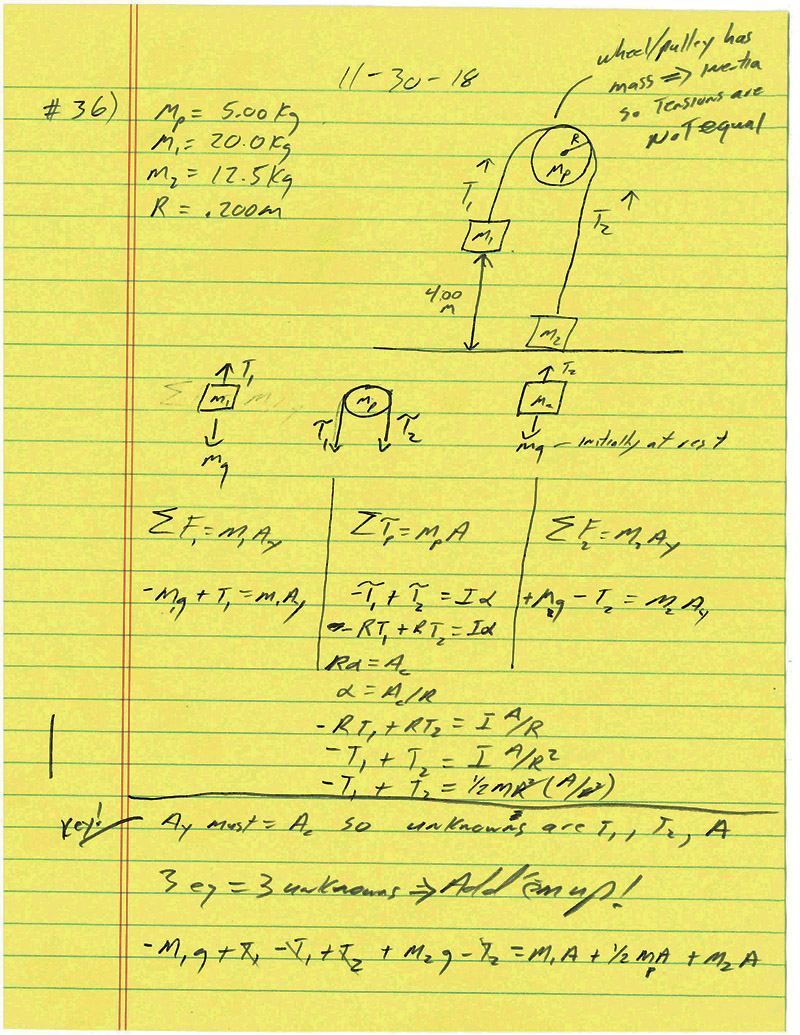 11-30-18
wheel/pulley has
mass => inertia
so Tensions are
NOT equal
#36)
Mp = 5.00 kg
M₁ = 20.0 kg
M₂ = 12.5 kg
R = .200m
R
Mp
T₁
T₂
M₁
4.00
M
M₂
T₁
M₁
Mg
Mp
τ₁
τ₂
T₂
M₂
Mg - initially at rest
ΣF₁ = M₁Ay
Στp = MpA
ΣF₂ = M₂Ay
-M₁g + T₁ = M₁Ay
-τ₁ + τ₂ = Iα
+M₂g - T₂ = M₂Ay
-RT₁ + RT₂ = Iα
Rα = Ac
α = Ac/R
-RT₁ + RT₂ = I A/R
-T₁ + T₂ = I A/R²
-T₁ + T₂ = 1/2 MR² (A/R²)
key! Ay must = Ac so unknowns are T₁, T₂, A
3 eq = 3 unknowns => Add 'em up!
-M₁g + T₁ - T₁ + T₂ + M₂g - T₂ = M₁A + 1/2 MpA + M₂A